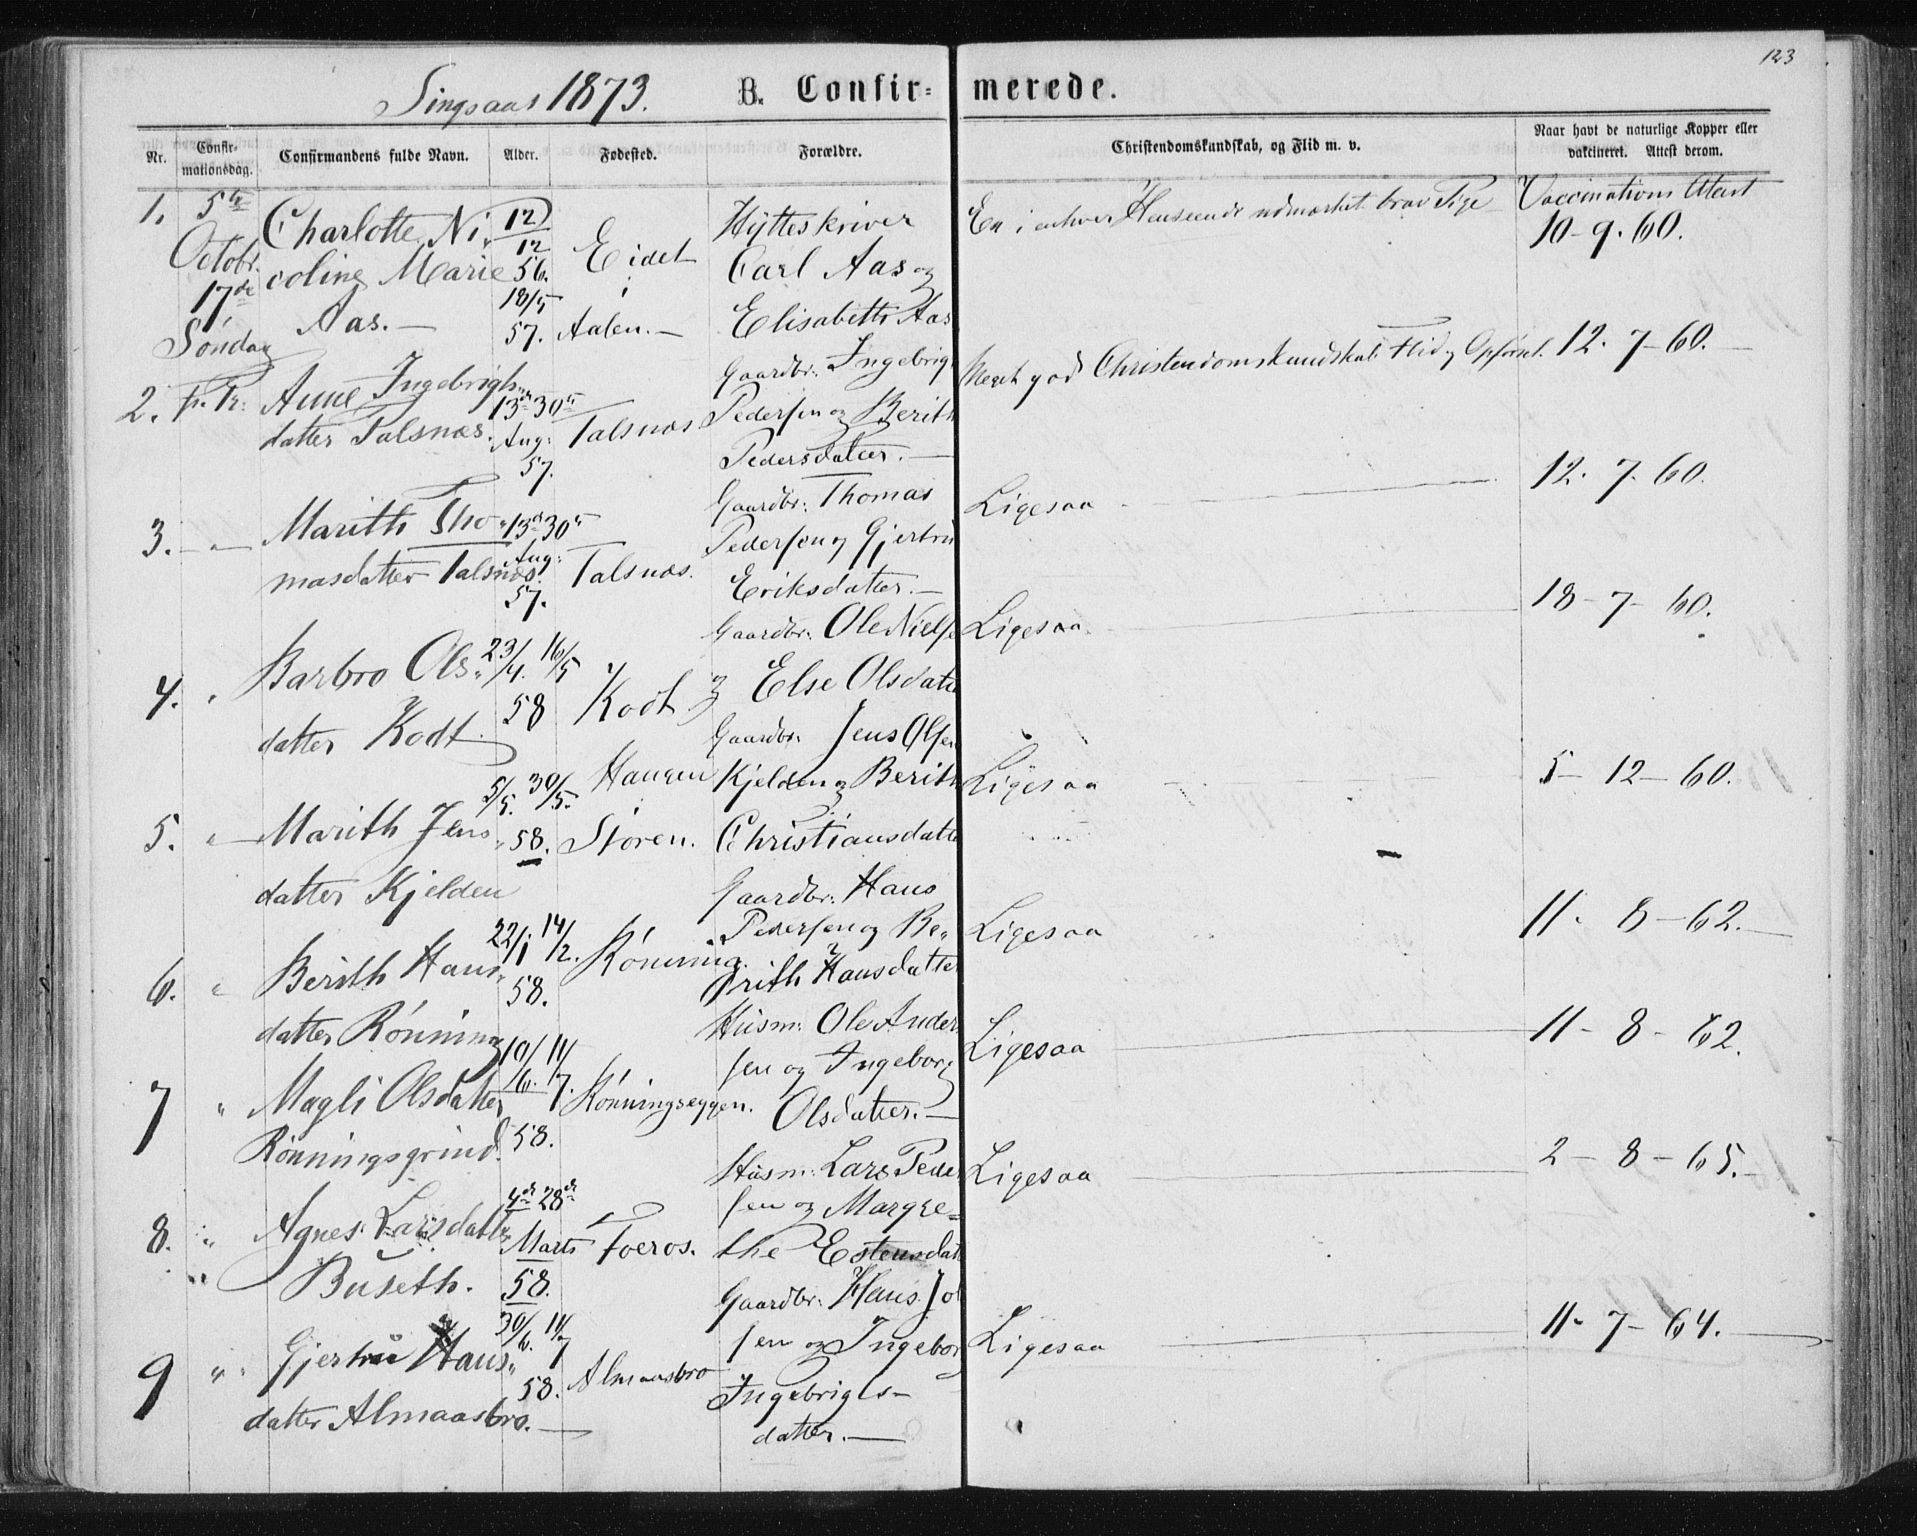 123
Singsaas 1873. B. Confir= merede.
Nr. Confir-mationsdag. Confirmandens fulde Navn. Alder. Fødested. Forældre. Christendomskundskab, og Flid m. v. Naar havt de naturlige Kopper eller vakcineret. Attest derom.
1. 5te Octobr. 17de Søndag Charlotte Ni- 12/12 56. Eidet Hytteskriver En i enhver Henseende udmærket brav Pige Vaccinations Attest
coline Marie 18/5 i Carl Aas og 10-9-60.
Aas. — 57. Aalen. — Elisabeth Aas
2. F. Tr. Anne Ingebrigts- 13de 30te Talsnæs Gaardbr: Ingebrigt Meget god Christendomskundskab Flid og Opførsel. 12. 7-60.
datter Talsnæs. Aug: Pedersen og Berith
57. Pedersdatter. —
3. — " — Marith Tho- 13de 30te Talsnæs. Gaardbr: Thomas Ligesaa 12. 7. 60.
masdatter Talsnæs. Aug: Pedersen og Gjertru
57. Eriksdatter. —
4. " Barbro Ols- 23/4. 16/5 Kodt. Gaardbr: Ole Nielse Ligesaa. 18-7-60.
datter Kodt. 58 og Else Olsdatte
5. " — Marith Jens- 5/5. 30/5. Haugen Gaardbr: Jens Olsen Ligesaa 5-12-60.
datter Kjelden 58. Støren. Kjelden og Berith
Christiansdatte
6. " Berith Hans- 22/1 14/2. Rønning. Gaardbr: Hans Ligesaa 11. 8-62.
datter Rønning 58. Pedersen og Be-
rith Hansdatter
7 " Magli Olsdatter 10/6. 11/7. Rønningseggen. Husm: Ole Ander Ligesaa 11-8-62.
Rønningsgrind. 58. sen og Ingeborg
Olsdatter. —
8. " Agnes Larsdatter 4de 28de Foeros. Husm: Lars Peder Ligesaa 2-8-65.
Buseth. Marts sen og Margre=
58. the Estensdat
9 " Gjertru Hans- 30/6. 11/7 Almaasbro Gaardbr: Hans Jo Ligesaa 11-7-64.
datter Almaasbro. — 58. sen og Ingebor
Ingebrigts-
datter. —